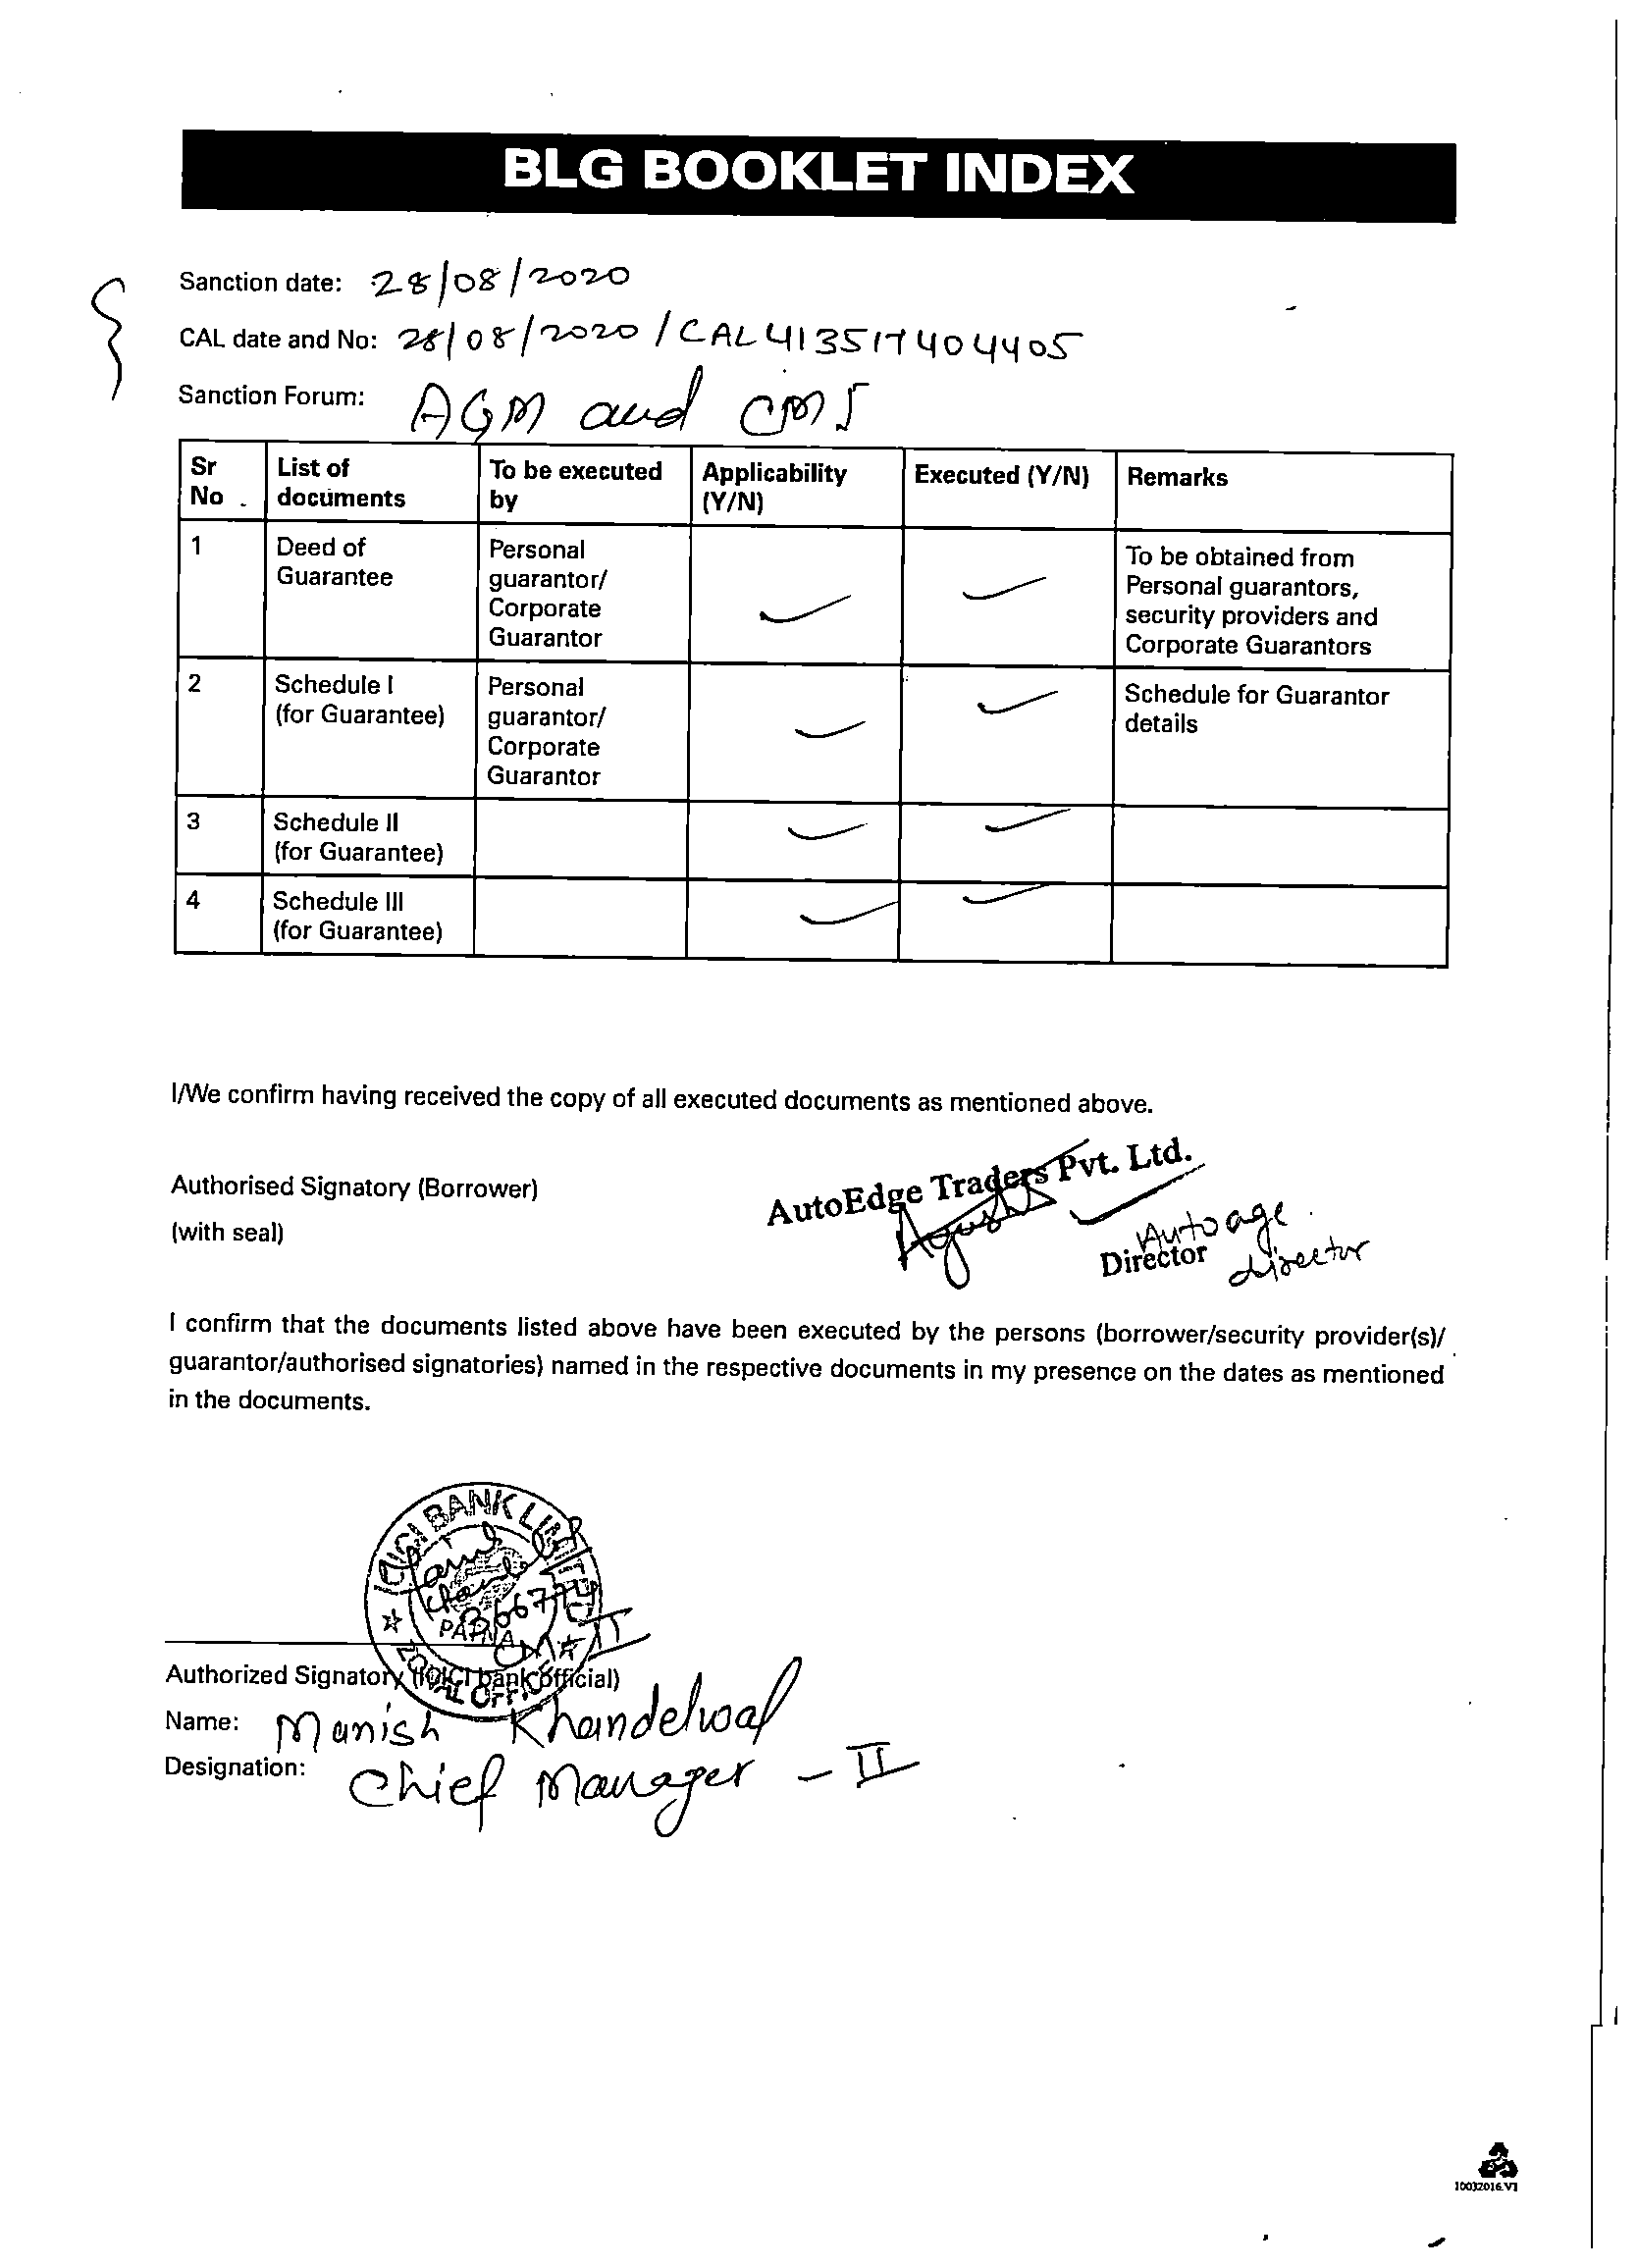 BLG BOOKLET INDEX
Sanction date: 28/08/2020
CAL date and No: 28/08/2020 / CAL413517404405
Sanction Forum: AGM and
Sr No
List of documents
To be executed by
Applicability (Y/N)
Executed (Y/N)
Remarks
1
Deed of
Guarantee
Personal
guarantor/
Corporate
Guarantor
To be obtained from
Personal guarantors,
security providers and
Corporate Guarantors
2
Schedule I
(for Guarantee)
Personal
guarantor/
Corporate
Guarantor
Schedule for Guarantor
details
3
Schedule II
(for Guarantee)
4
Schedule III
(for Guarantee)
I/We confirm having received the copy of all executed documents as mentioned above.
Authorised Signatory (Borrower)
(with seal)
AutoEdge Traders Pvt. Ltd.
Autoage
Director
director
I confirm that the documents listed above have been executed by the persons (borrower/security provider(s)/
guarantor/authorised signatories) named in the respective documents in my presence on the dates as mentioned
in the documents.
ICICI BANK LIMITED
PATNA
ZONAL OFFICE
CM-II
Authorized Signatory (ICICI bank official)
Name: Manish Khandelwal
Designation: Chief Manager - II
10032016.V1